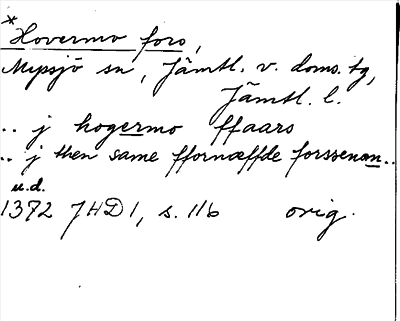 * Hovermo fors,
Mepsjö sn, Jämtl. v. doms. tg,
Jämtl. l.
.. j hogermo ffaars
.. j then same ffornæffde forssenom..
u.d.
1372 JHD1, s. 116 orig.